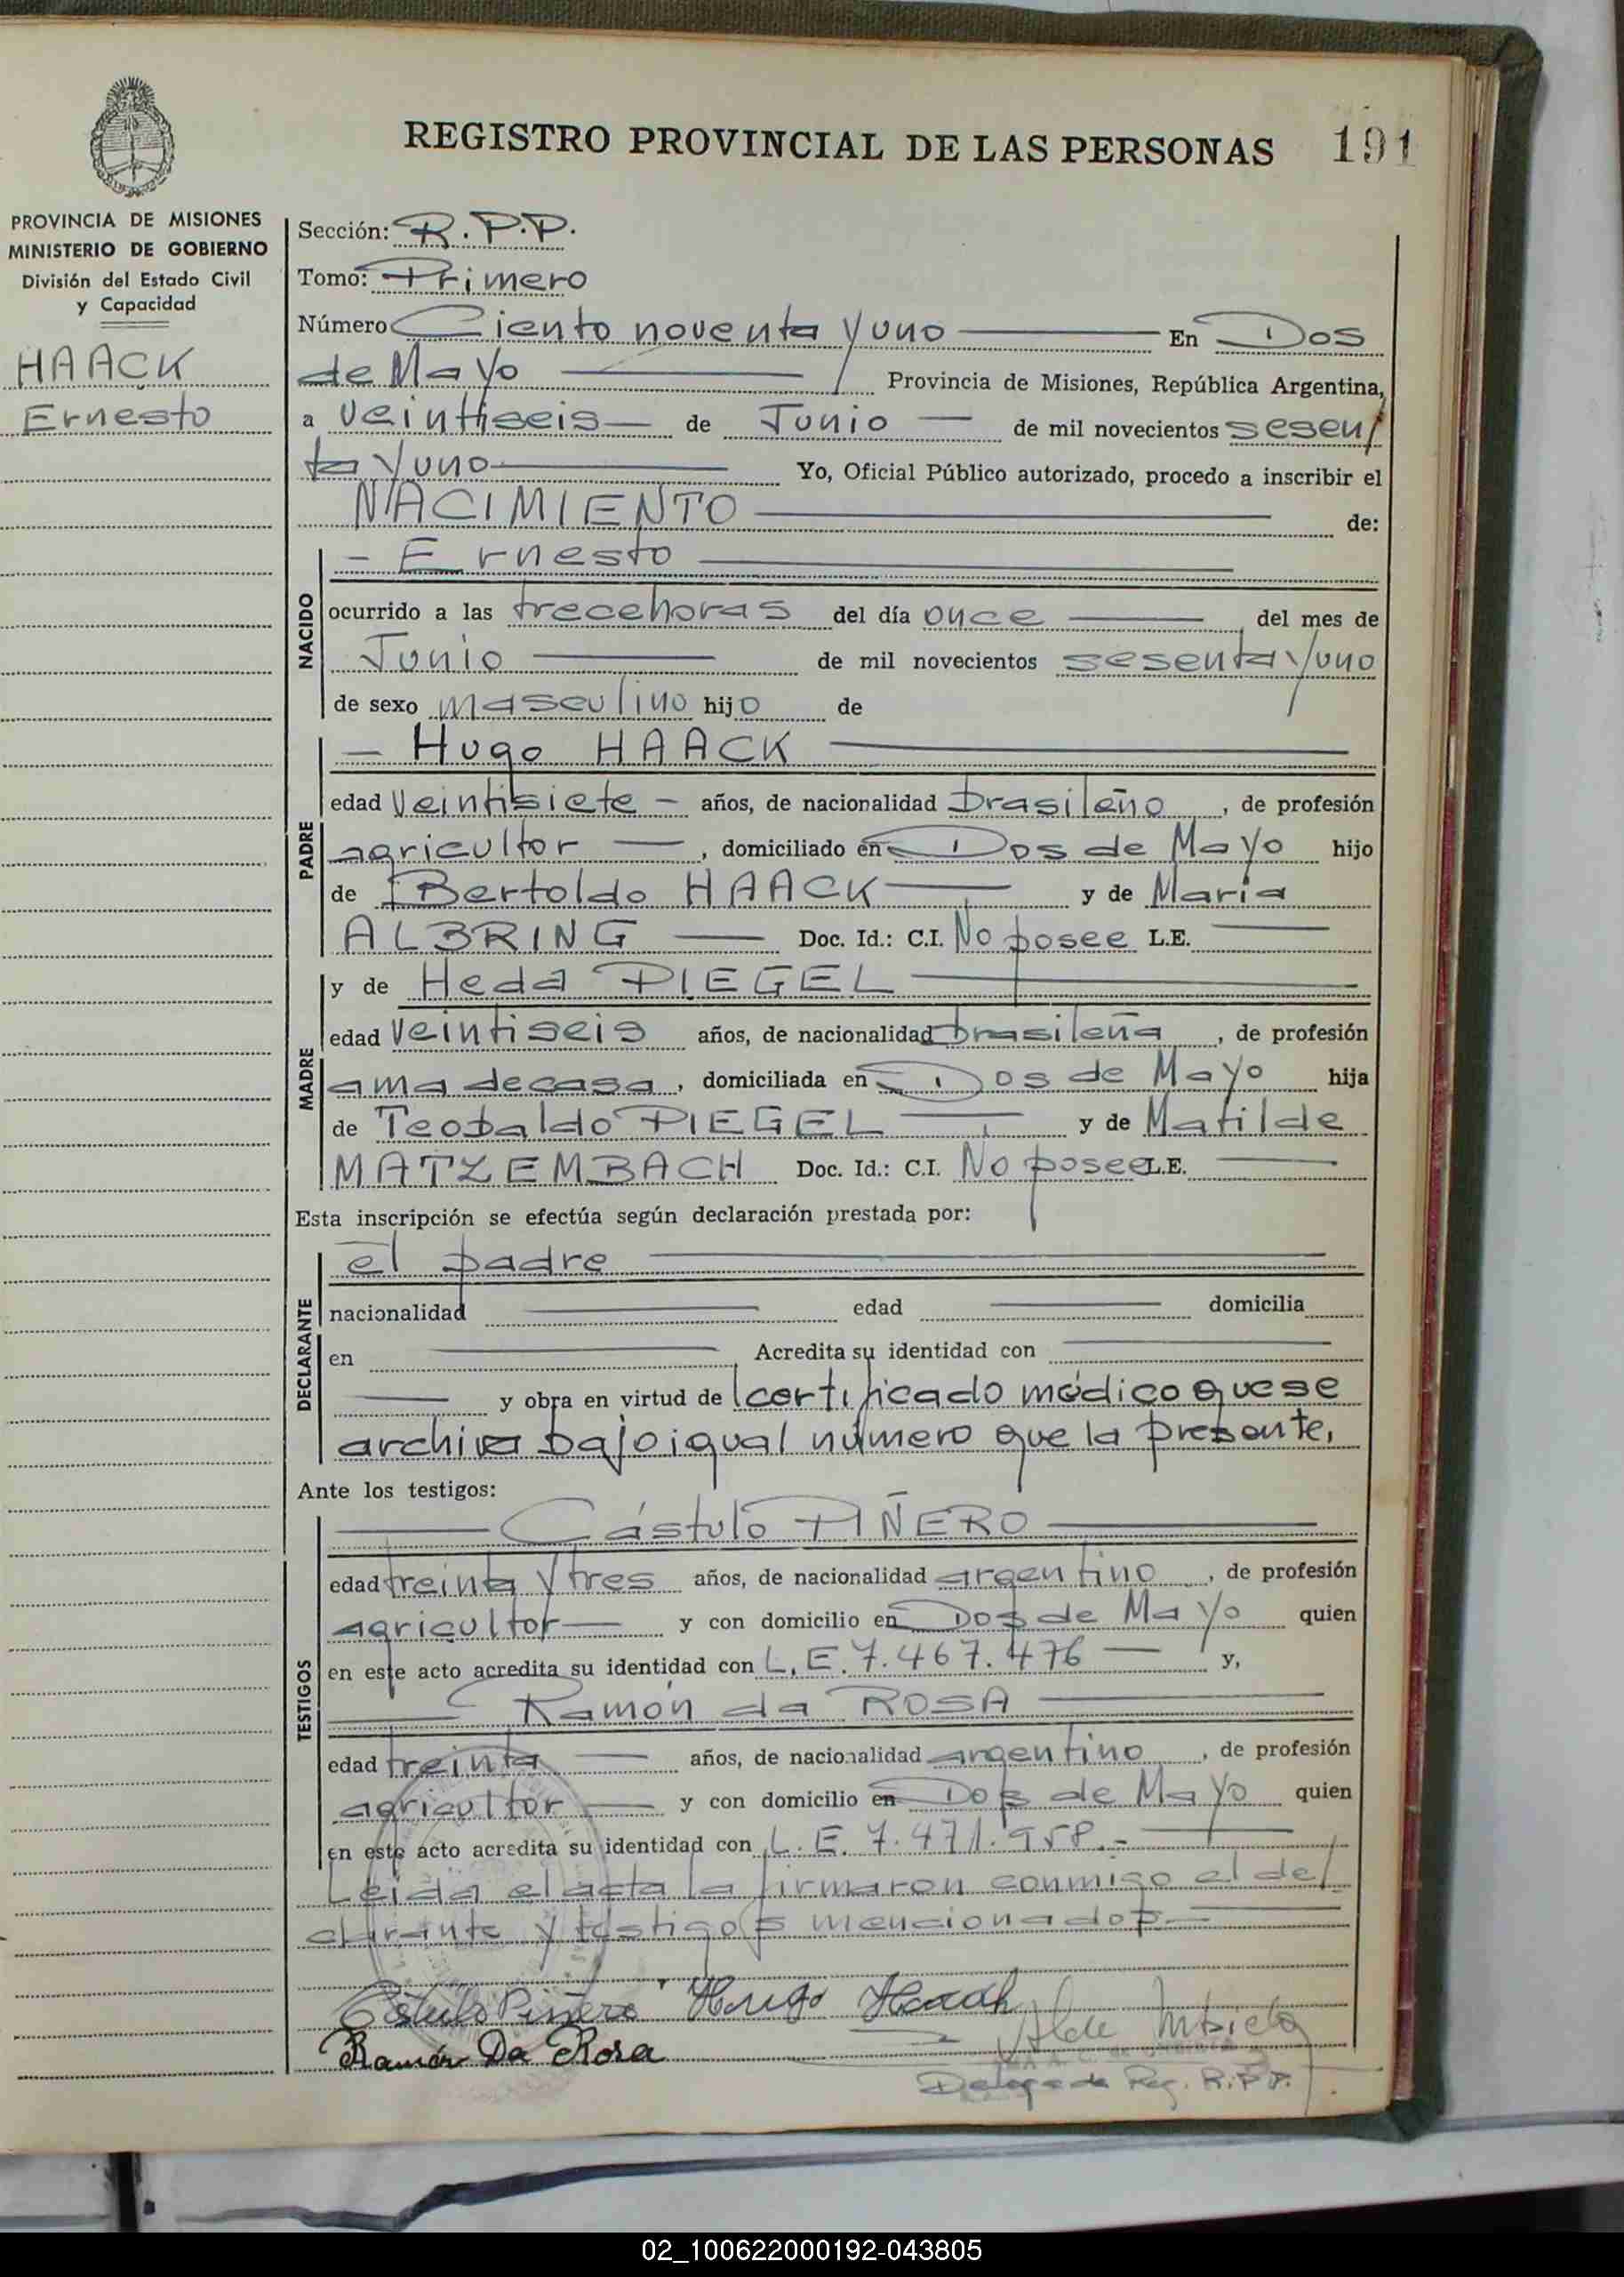 REGISTRO PROVINCIAL DE LAS PERSONAS 191
PROVINCIA DE MISIONES
MINISTERIO DE GOBIERNO
División del Estado Civil
y Capacidad
HAACK
Ernesto
Sección: R.P.P.
Tomo: Primero
Número Ciento noventa y uno En Dos
de Mayo Provincia de Misiones, República Argentina,
a veintiseis de Junio de mil novecientos sesen/
ta y uno Yo, Oficial Público autorizado, procedo a inscribir el
NACIMIENTO de:
NACIDO
- Ernesto
ocurrido a las trece horas del día once del mes de
Junio de mil novecientos sesenta y uno
de sexo masculino hijo de
PADRE
- Hugo HAACK
edad veintisiete - años, de nacionalidad brasileño, de profesión
agricultor, domiciliado en Dos de Mayo hijo
de Bertoldo HAACK y de María
ALBRING Doc. Id.: C.I. No posee L.E.
MADRE
y de Heda PIEGEL
edad veintiseis años, de nacionalidad brasileña, de profesión
ama de casa, domiciliada en Dos de Mayo hija
de Teobaldo PIEGEL y de Matilde
MATZEMBACH Doc. Id.: C.I. No posee L.E.
Esta inscripción se efectúa según declaración prestada por:
DECLARANTE
el padre
nacionalidad edad domicilia
en Acredita su identidad con
y obra en virtud de certificado médico que se
archiva bajo igual número que la presente,
Ante los testigos:
TESTIGOS
Cástulo PIÑERO
edad treinta y tres años, de nacionalidad argentino, de profesión
agricultor y con domicilio en Dos de Mayo quien
en este acto acredita su identidad con L.E. 7.467.476 y,
Ramón da ROSA
edad treinta años, de nacionalidad argentino, de profesión
agricultor y con domicilio en Dos de Mayo quien
en este acto acredita su identidad con L.E. 7.471.958.-
Leída el acta la firmaron conmigo el de/
clarante y testigos mencionados
Cástulo Piñero Hugo Haack
Ramón Da Rosa
Delegada Reg. R.P.P.
02_100622000192-043805